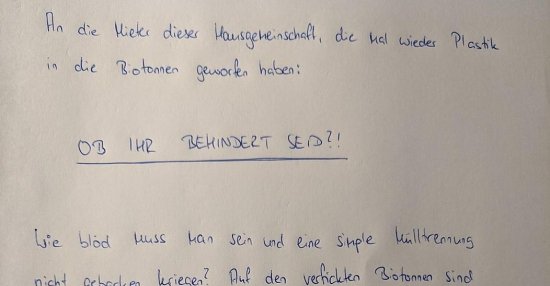 An die Mieter dieser Hausgemeinschaft, die mal wieder Plastik
in die Biotonnen geworfen haben:
OB IHR BEHINDERT SEID?!
Wie blöd muss man sein und eine simple Mülltrennung
nicht gebacken kriegen? Auf den verfickten Biotonnen sind